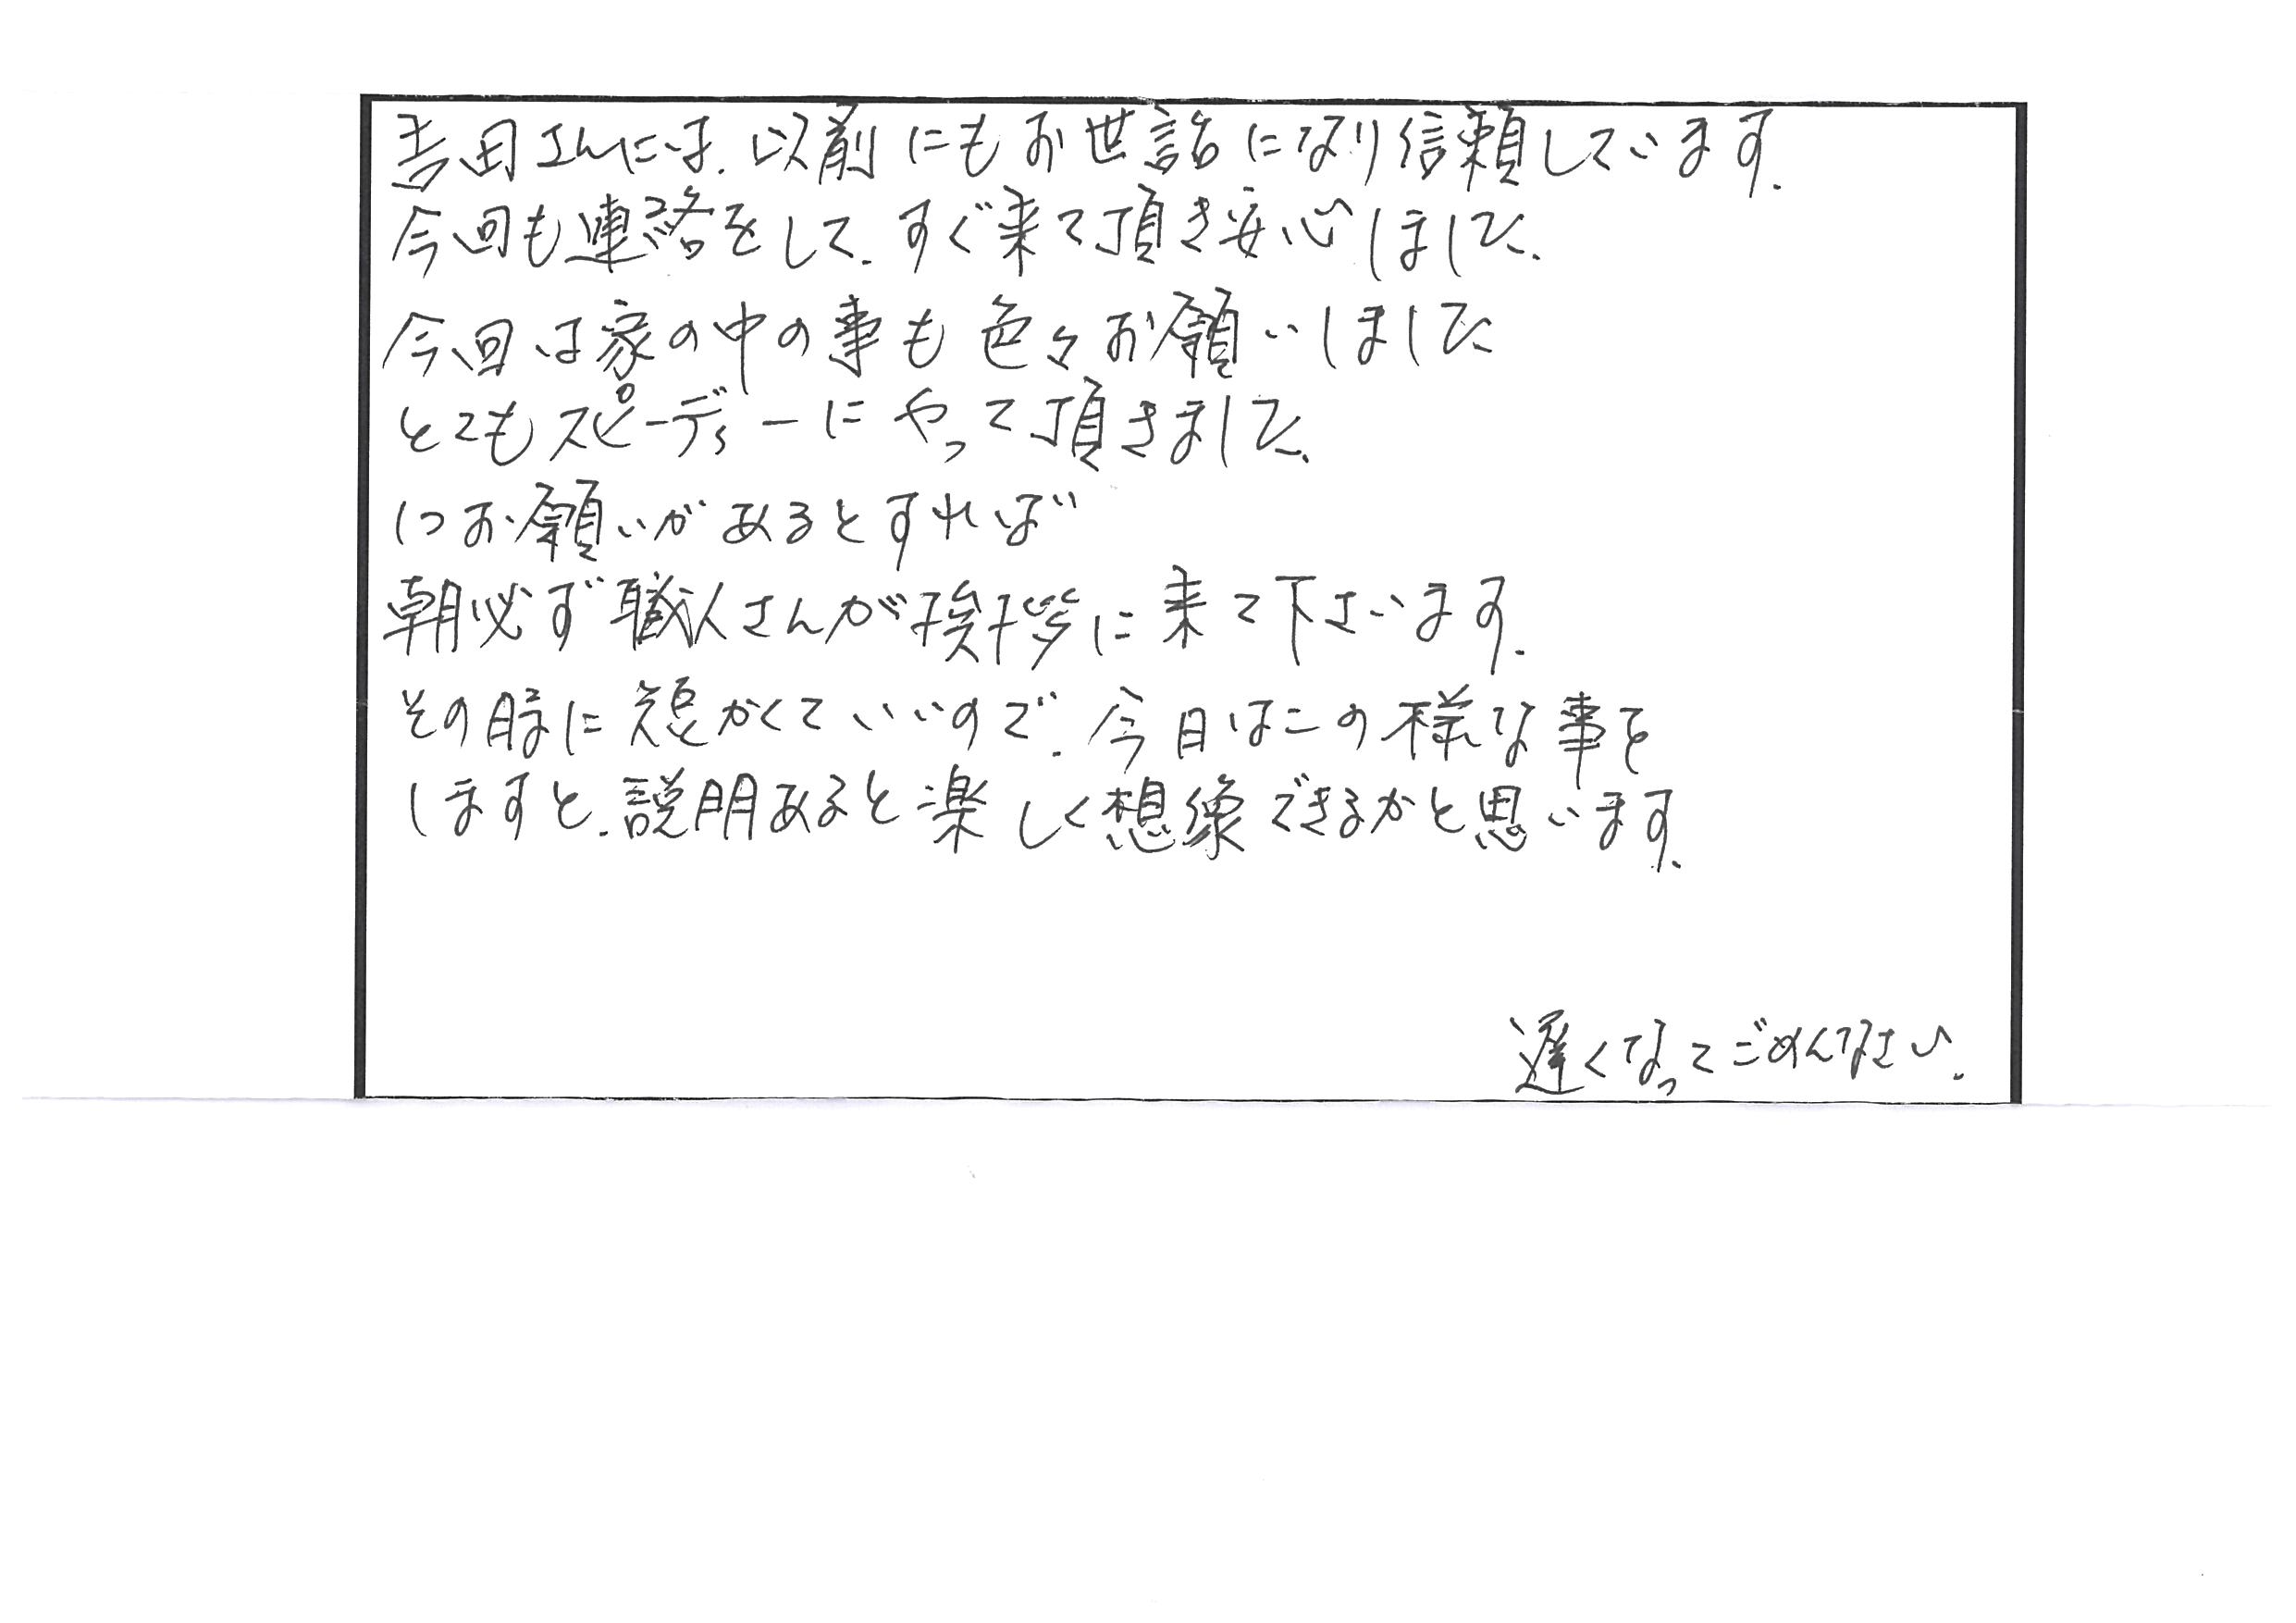 吉田さんには、以前にもお世話になり信頼しています。
今回も連絡をして、すぐ来て頂き安心しました。
今回は家の中の事も色々お願いしました
とてもスピーディーにやって頂きました。
1つお願いがあるとすれば
朝必ず職人さんが挨拶に来て下さいます。
その時に短かくていいので、今日はこの様な事を
しますと、説明あると楽しく想像できるかと思います。
遅くなってごめんなさい。